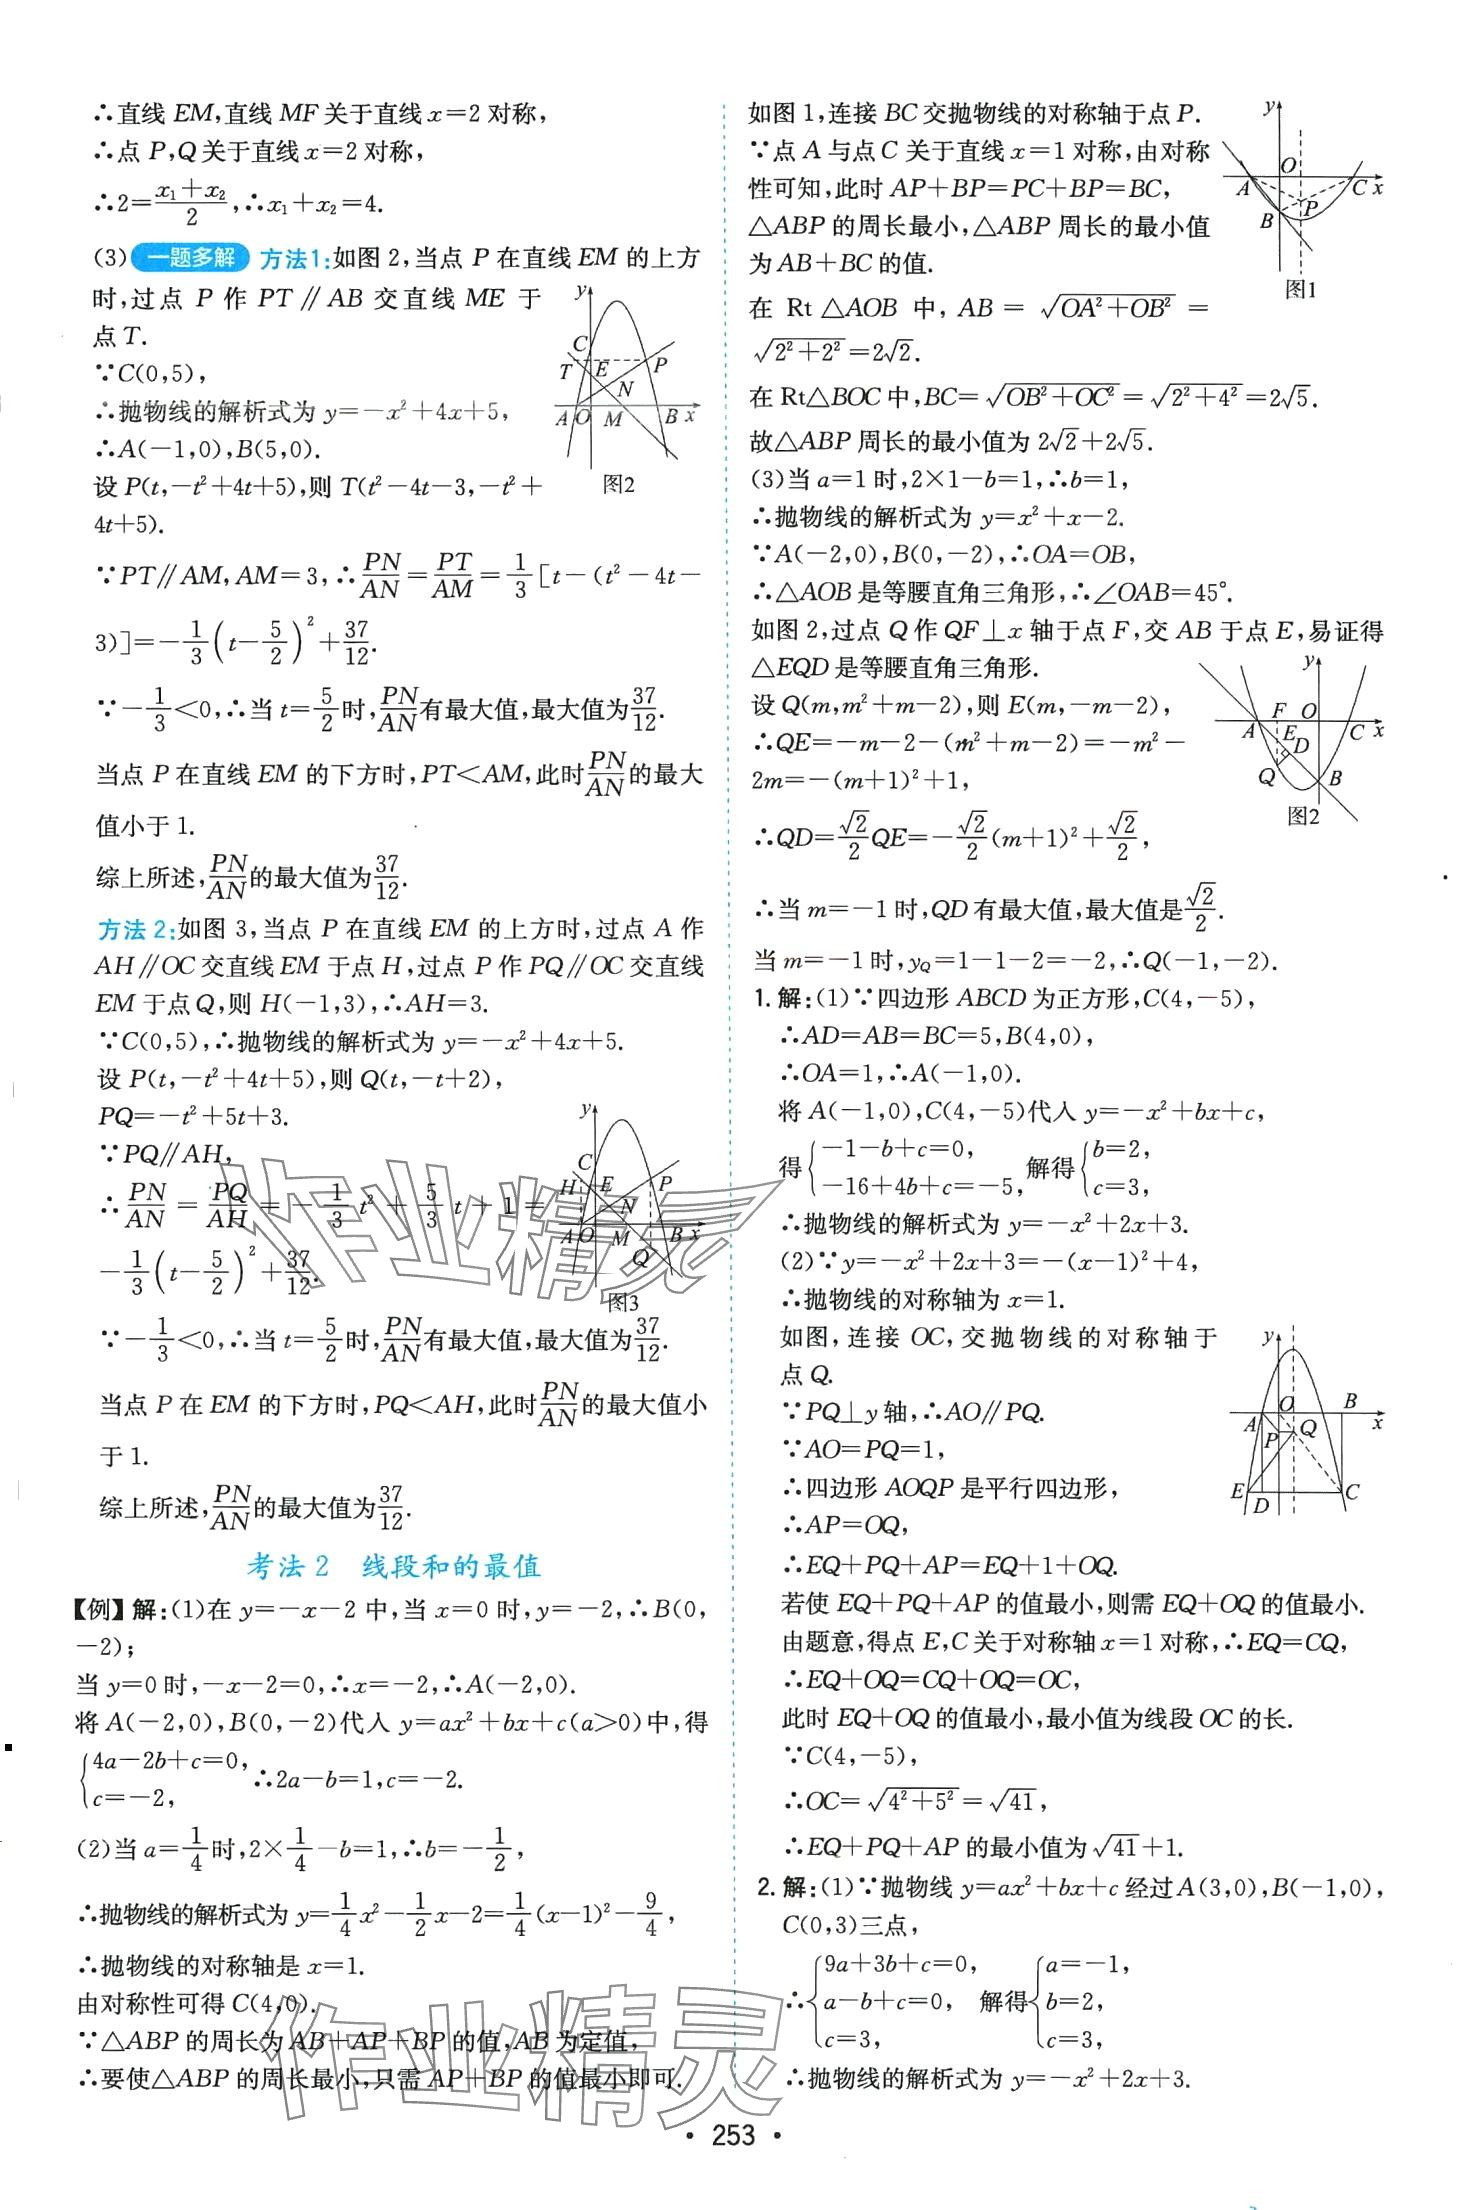 ∴直线 EM,直线 MF 关于直线 x=2 对称,
∴点 P,Q 关于直线 x=2 对称,
∴2=(x₁+x₂)/2,∴x₁+x₂=4.
(3) 一题多解 方法1:如图 2,当点 P 在直线 EM 的上方
时,过点 P 作 PT∥AB 交直线 ME 于
点 T.
∵C(0,5),
∴抛物线的解析式为 y=-x²+4x+5,
∴A(-1,0),B(5,0).
设 P(t,-t²+4t+5),则 T(t²-4t-3,-t²+
4t+5).
y C T E P N A O M B x
图2
∵PT∥AM,AM=3,∴PN/AN=PT/AM=1/3[t-(t²-4t-
3)]=-1/3(t-5/2)²+37/12.
∵-1/3<0,∴当 t=5/2时,PN/AN有最大值,最大值为37/12.
当点 P 在直线 EM 的下方时,PT<AM,此时PN/AN的最大
值小于 1.
综上所述,PN/AN的最大值为37/12.
方法 2:如图 3,当点 P 在直线 EM 的上方时,过点 A 作
AH∥OC 交直线 EM 于点 H,过点 P 作 PQ∥OC 交直线
EM 于点 Q,则 H(-1,3),∴AH=3.
∵C(0,5),∴抛物线的解析式为 y=-x²+4x+5.
设 P(t,-t²+4t+5),则 Q(t,-t+2),
PQ=-t²+5t+3.
∵PQ∥AH,
∴PN/AN=PQ/AH=-1/3t²+5/3t+1=
-1/3(t-5/2)²+37/12.
y C H E P N A O M B x Q
图3
∵-1/3<0,∴当 t=5/2时,PN/AN有最大值,最大值为37/12.
当点 P 在 EM 的下方时,PQ<AH,此时PN/AN的最大值小
于 1.
综上所述,PN/AN的最大值为37/12.
考法 2 线段和的最值
【例】解:(1)在 y=-x-2 中,当 x=0 时,y=-2,∴B(0,
-2);
当 y=0 时,-x-2=0,∴x=-2,∴A(-2,0).
将 A(-2,0),B(0,-2)代入 y=ax²+bx+c(a>0)中,得
{4a-2b+c=0,
c=-2, ∴2a-b=1,c=-2.
(2)当 a=1/4时,2×1/4-b=1,∴b=-1/2,
∴抛物线的解析式为 y=1/4x²-1/2x-2=1/4(x-1)²-9/4,
∴抛物线的对称轴是 x=1.
由对称性可得 C(4,0).
∵△ABP 的周长为 AB+AP+BP 的值,AB 为定值,
∴要使△ABP 的周长最小,只需 AP+BP 的值最小即可.
如图 1,连接 BC 交抛物线的对称轴于点 P.
∵点 A 与点 C 关于直线 x=1 对称,由对称
性可知,此时 AP+BP=PC+BP=BC,
△ABP 的周长最小,△ABP 周长的最小值
为 AB+BC 的值.
y O A C x B P
图1
在 Rt △AOB 中, AB = √(OA²+OB²) =
√(2²+2²)=2√2.
在 Rt△BOC 中,BC=√(OB²+OC²)=√(2²+4²)=2√5.
故△ABP 周长的最小值为 2√2+2√5.
(3)当 a=1 时,2×1-b=1,∴b=1,
∴抛物线的解析式为 y=x²+x-2.
∵A(-2,0),B(0,-2),∴OA=OB,
∴△AOB 是等腰直角三角形,∴∠OAB=45°.
如图 2,过点 Q 作 QF⊥x 轴于点 F,交 AB 于点 E,易证得
△EQD 是等腰直角三角形.
设 Q(m,m²+m-2),则 E(m,-m-2),
∴QE=-m-2-(m²+m-2)=-m²-
2m=-(m+1)²+1,
y F O A E C x D Q B
图2
∴QD=√2/2QE=-√2/2(m+1)²+√2/2,
∴当 m=-1 时,QD 有最大值,最大值是√2/2.
当 m=-1 时,y_Q=1-1-2=-2,∴Q(-1,-2).
1. 解:(1)∵四边形 ABCD 为正方形,C(4,-5),
∴AD=AB=BC=5,B(4,0),
∴OA=1,∴A(-1,0).
将 A(-1,0),C(4,-5)代入 y=-x²+bx+c,
得{-1-b+c=0,
-16+4b+c=-5, 解得{b=2,
c=3,
∴抛物线的解析式为 y=-x²+2x+3.
(2)∵y=-x²+2x+3=-(x-1)²+4,
∴抛物线的对称轴为 x=1.
如图,连接 OC,交抛物线的对称轴于
点 Q.
∵PQ⊥y 轴,∴AO∥PQ.
∵AO=PQ=1,
∴四边形 AOQP 是平行四边形,
∴AP=OQ,
y O B A x P Q E D C
∴EQ+PQ+AP=EQ+1+OQ.
若使 EQ+PQ+AP 的值最小,则需 EQ+OQ 的值最小.
由题意,得点 E,C 关于对称轴 x=1 对称,∴EQ=CQ,
∴EQ+OQ=CQ+OQ=OC,
此时 EQ+OQ 的值最小,最小值为线段 OC 的长.
∵C(4,-5),
∴OC=√(4²+5²)=√41,
∴EQ+PQ+AP 的最小值为√41+1.
2. 解:(1)∵抛物线 y=ax²+bx+c 经过 A(3,0),B(-1,0),
C(0,3)三点,
∴{9a+3b+c=0,
a-b+c=0,
c=3, 解得{a=-1,
b=2,
c=3,
∴抛物线的解析式为 y=-x²+2x+3.
作业精灵
作业精灵
• 253 •